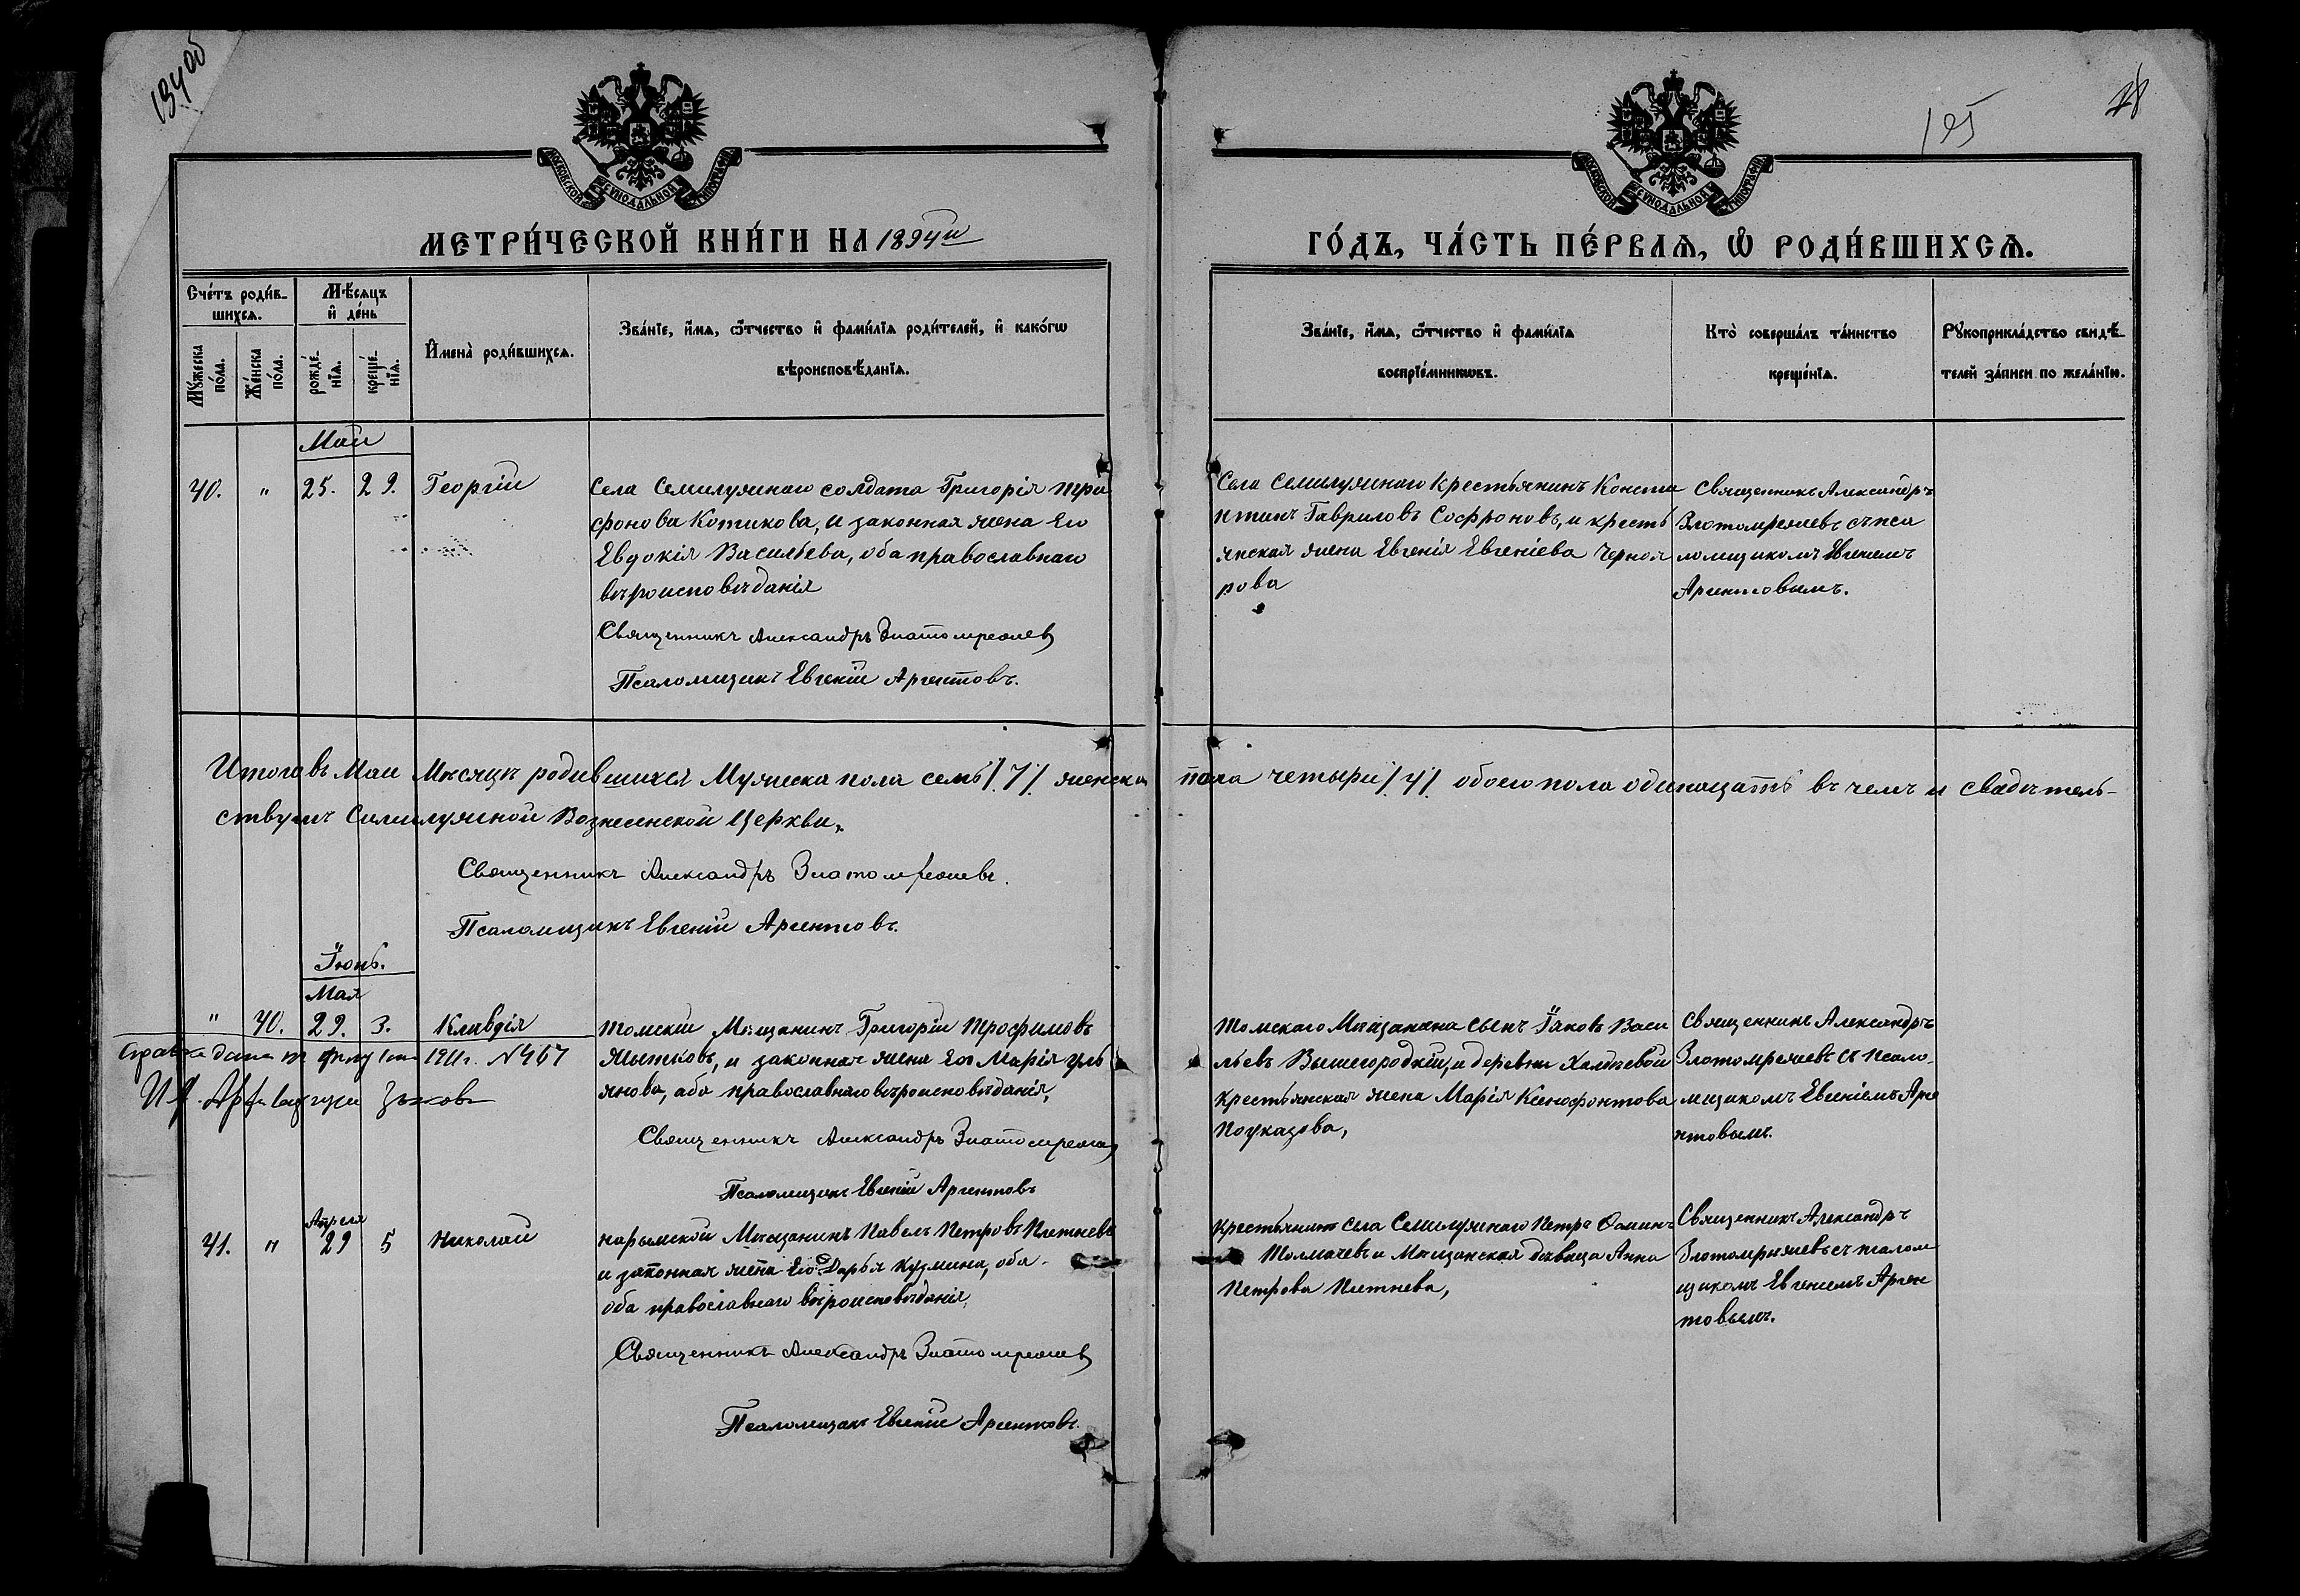 134 об
МОСКОВСКОЙ СѴНОДАЛЬНОЙ ТИПОГРАФІИ
МЕТРИ́ЧЕСКОЙ КНИ́ГИ НА 1894й
Сче́тъ роди́в-
шихсѧ.
Мѣ́сѧцъ
и҆ де́нь
Мꙋ́жеска
по́ла.
Же́нска
по́ла.
рожде́-
нїѧ.
креще́-
нїѧ.
И҆мена̀ роди́вшихсѧ.
Зва́нїе, и҆́мѧ, ѻ҆́тчество и҆ фами́лїѧ роди́телей, и҆ како́гѡ
вѣроисповѣ́данїѧ.
Май
40. " 25. 29. Георгій
Села Семилужнаго солдата Григорія Три
фонова Котикова, и законная жена Его
Евдокія Васильева, оба православнаго
вѣроисповѣданія
Священникъ Александръ Златомрежев
Псаломщикъ Евгеній Аргентовъ.
Итого въ Маи Мѣсяцѣ родившихся Мужеска пола семь /7/ женска
ствуемъ Симилужной Вознесенской Церкви,
Священникъ Александръ Златомрежевъ.
Псаломщикъ Евгеній Аргентовъ.
Іюнь.
Мая
" 40. 29. 3. Клавдія
Справка дана 1911г. №467
Томскій Мѣщанинъ Григорій Трофимовъ
Мытковъ, и законная жена Его Марія Уль
янова, оба православнаго вѣроисповѣданія,
Священникъ Александръ Златомрежев
Псаломщикъ Евгеній Аргентовъ
Апреля
41. " 29 5 Николай
Нарымской Мѣщанинъ Павелъ Петровъ Плетневъ
и законная жена Его Дарья Кузмина, оба
оба православнаго вѣроисповѣданія,
Священникъ Александръ Златомрежев
Псаломщикъ Евгеній Аргентовъ.
195
28
МОСКОВСКОЙ СѴНОДАЛЬНОЙ ТИПОГРАФІИ
ГО́ДЪ, ЧА́СТЬ ПЕ́РВАѦ, Ѡ҆ РОДИ́ВШИХСѦ.
Зва́нїе, и҆́мѧ, ѻ҆́тчество и҆ фами́лїѧ
воспрїе́мникѡвъ.
Кто̀ соверша́лъ та́инство
креще́нїѧ.
Рꙋкоприкла́дство свидѣ́-
телей за́писи по жела́нїю.
Села Семилужнаго Крестьянинъ Конста
нтинъ Гавриловъ Софроновъ, и кресть
янская жена Евгенія Евгеніева Черноя
рова
Священникъ Александръ
Златомрежевъ съ пса
ломщикомъ Евгеніемъ
Аргентовымъ.
пола четыри /4/ обоего пола одинацать въ чемъ и свидѣтель-
Томскаго Мѣщанина сынъ Іаковъ Васи
льевъ Вышегородкій, и деревни Халдѣевой
Крестьянская жена Марія Ксенофонтова
Поуказова,
Священникъ Александръ
Златомрежевъ съ псало-
мщикомъ Евгеніемъ Арге
нтовымъ.
Крестьянинъ Села Семилужнаго Петръ Фоминъ
Толмачевъ и Мѣщанская дѣвица Анна
Петрова Плетнева,
Священникъ Александръ
Златомрежевъ съ псалом
щикомъ Евгеніемъ Арген
товымъ.